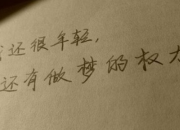 还很年轻,
还有做梦的权